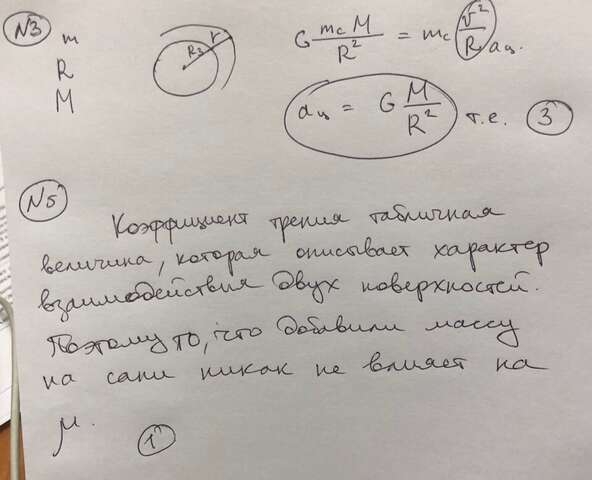 №3 m
R
M
R₃ r
G m_c M / R² = m_c v² / R a_ц.
a_ц = G M / R² т.е. 3
№5
Коэффициент трения табличная
величина, которая описывает характер
взаимодействия двух поверхностей.
Поэтому то, что добавили массу
на сани никак не влияет на
μ.
1